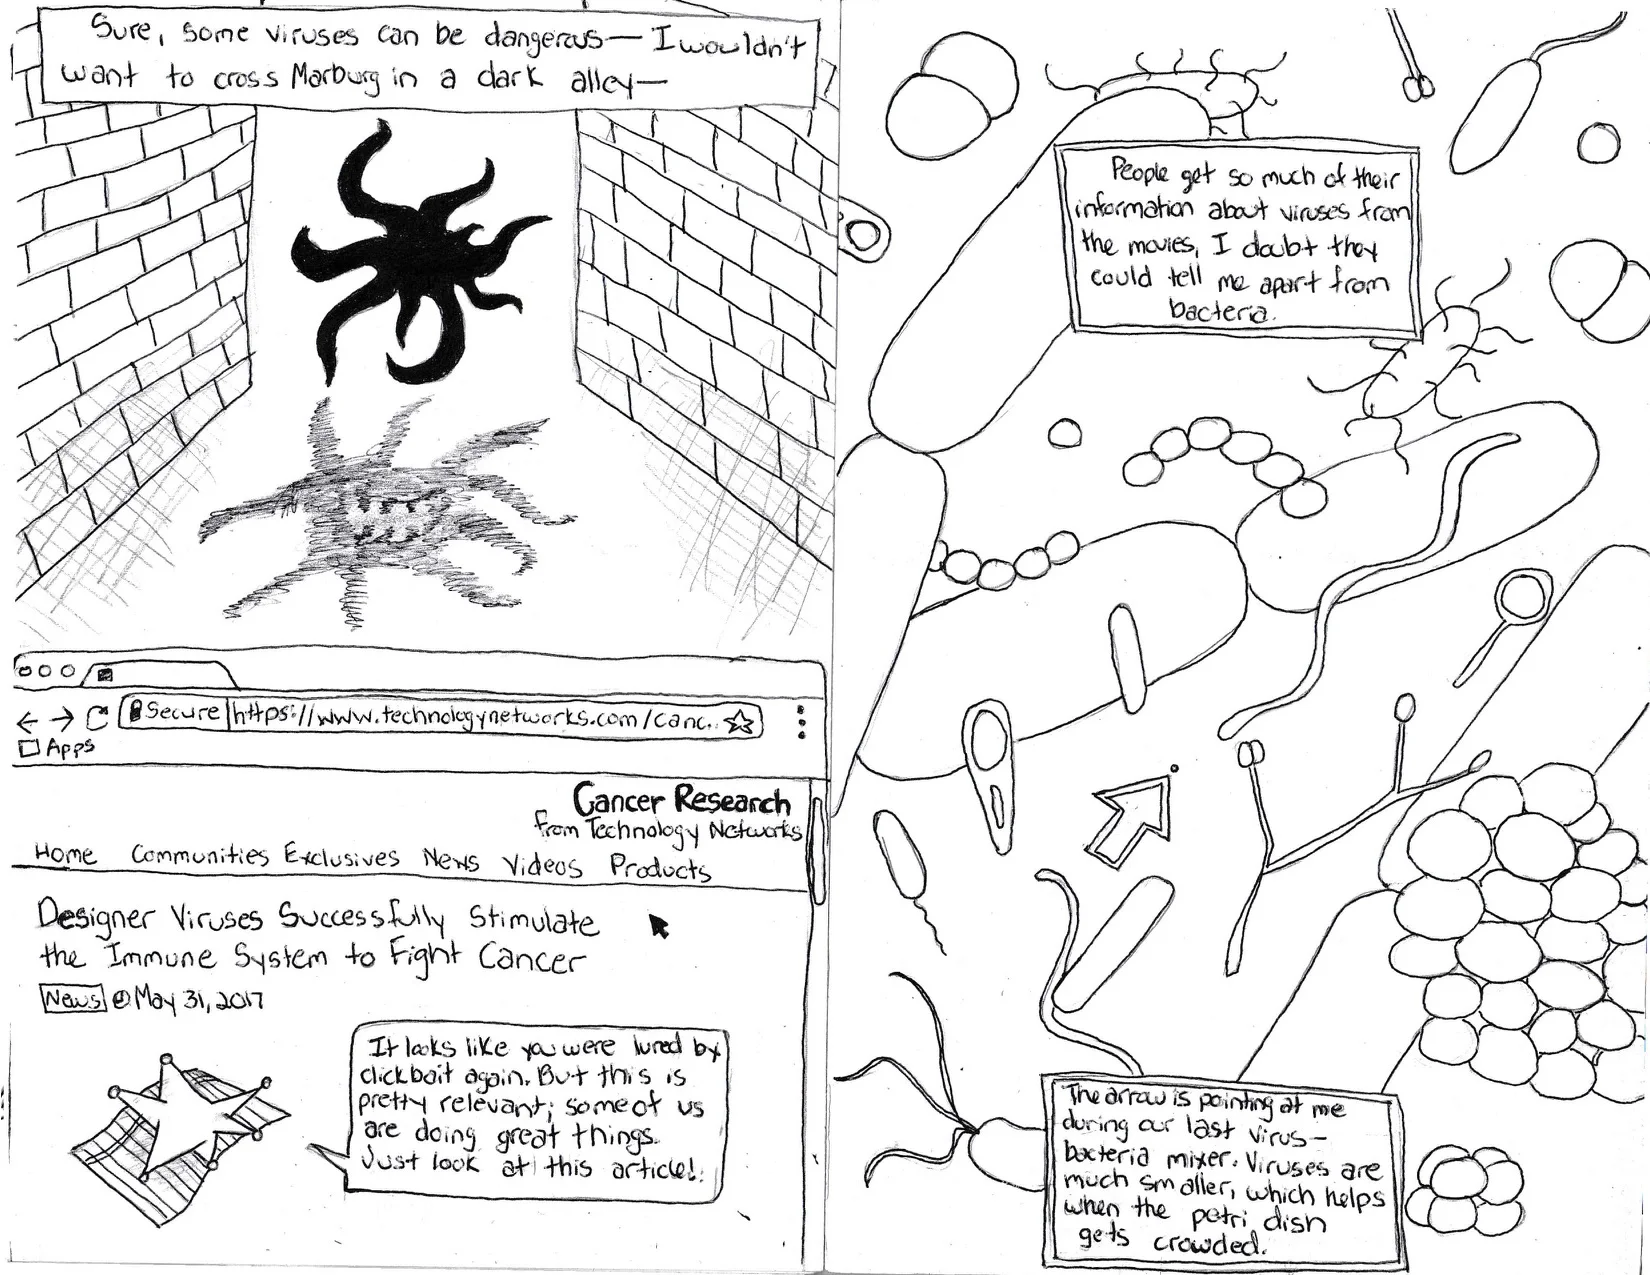 Sure, some viruses can be dangerous— I wouldn't
want to cross Marburg in a dark alley—
Secure https://www.technologynetworks.com/canc..
Apps
Cancer Research
from Technology Networks
Home Communities Exclusives News Videos Products
Designer Viruses Successfully Stimulate
the Immune System to Fight Cancer
News May 31, 2017
It looks like you were lured by
clickbait again. But this is
pretty relevant; some of us
are doing great things.
Just look at this article!
People get so much of their
information about viruses from
the movies, I doubt they
could tell me apart from
bacteria.
The arrow is pointing at me
during our last virus-
bacteria mixer. Viruses are
much smaller, which helps
when the petri dish
gets crowded.